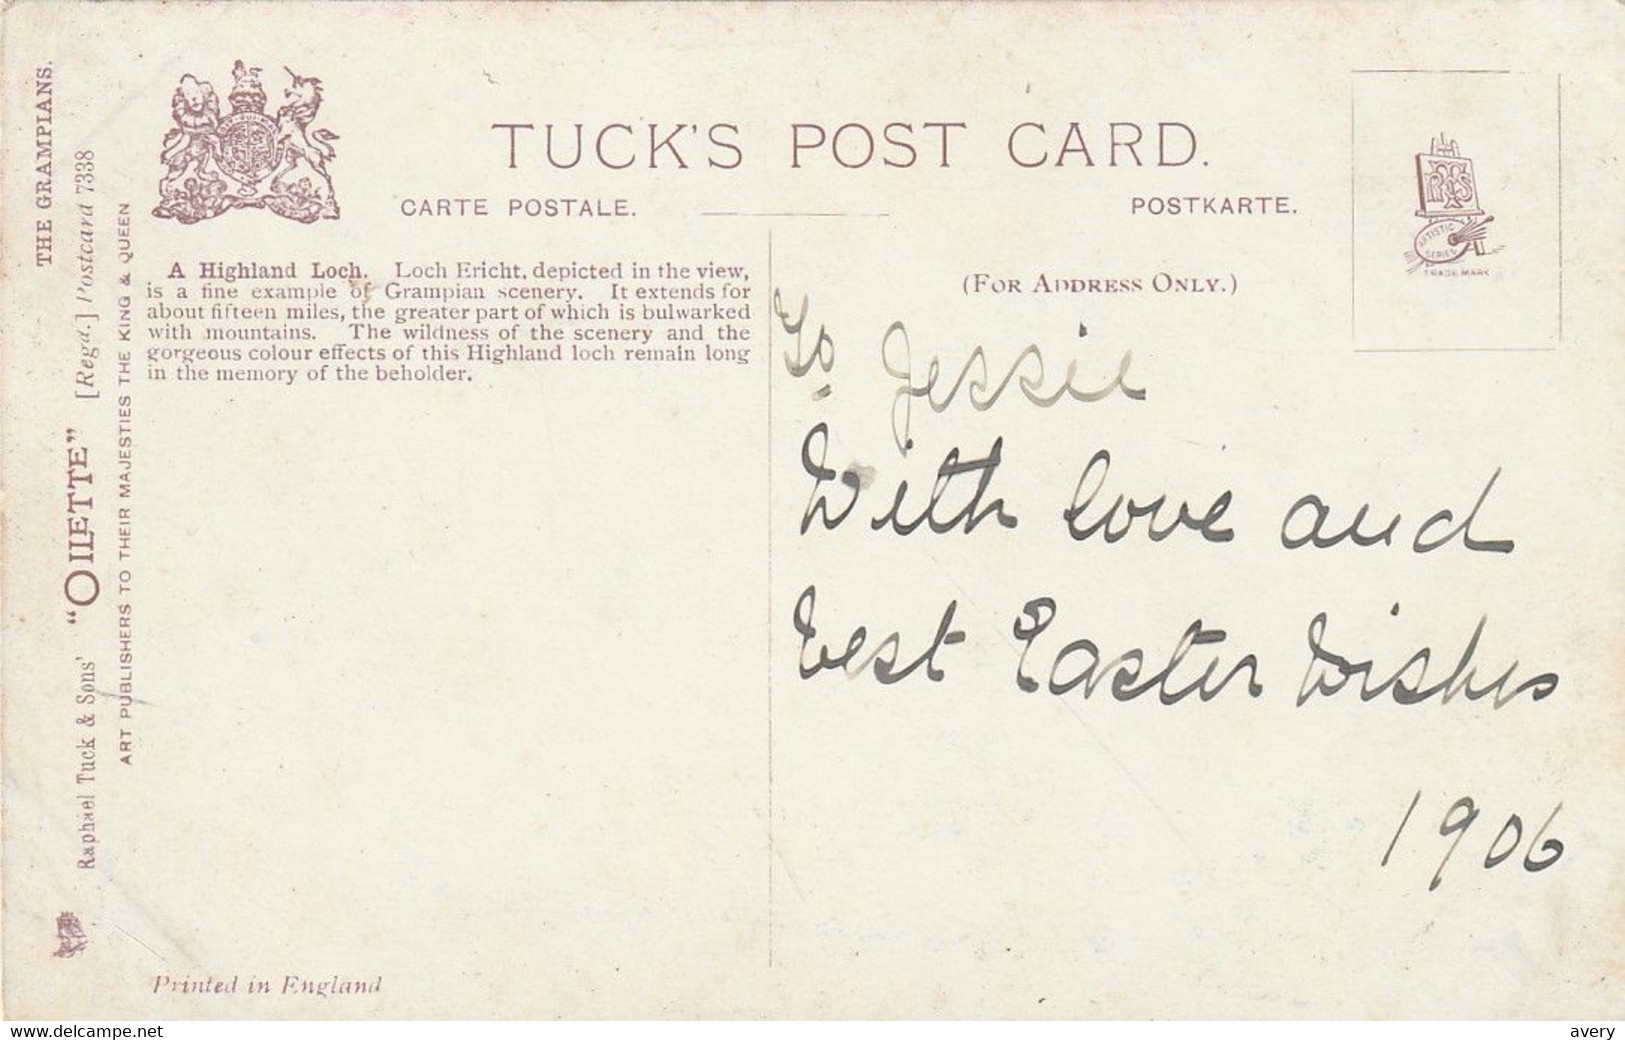 THE GRAMPIANS.
Raphael Tuck & Sons' "OILETTE" [Regd.] Postcard 7338
ART PUBLISHERS TO THEIR MAJESTIES THE KING & QUEEN
TUCK'S POST CARD.
CARTE POSTALE.
POSTKARTE.
RTS
ARTISTIC
SERIES
TRADE MARK
A Highland Loch. Loch Ericht, depicted in the view,
is a fine example of Grampian scenery. It extends for
about fifteen miles, the greater part of which is bulwarked
with mountains. The wildness of the scenery and the
gorgeous colour effects of this Highland loch remain long
in the memory of the beholder.
(FOR ADDRESS ONLY.)
To Jessie
With love and
best Easter Wishes
1906
Printed in England
www.delcampe.net
avery